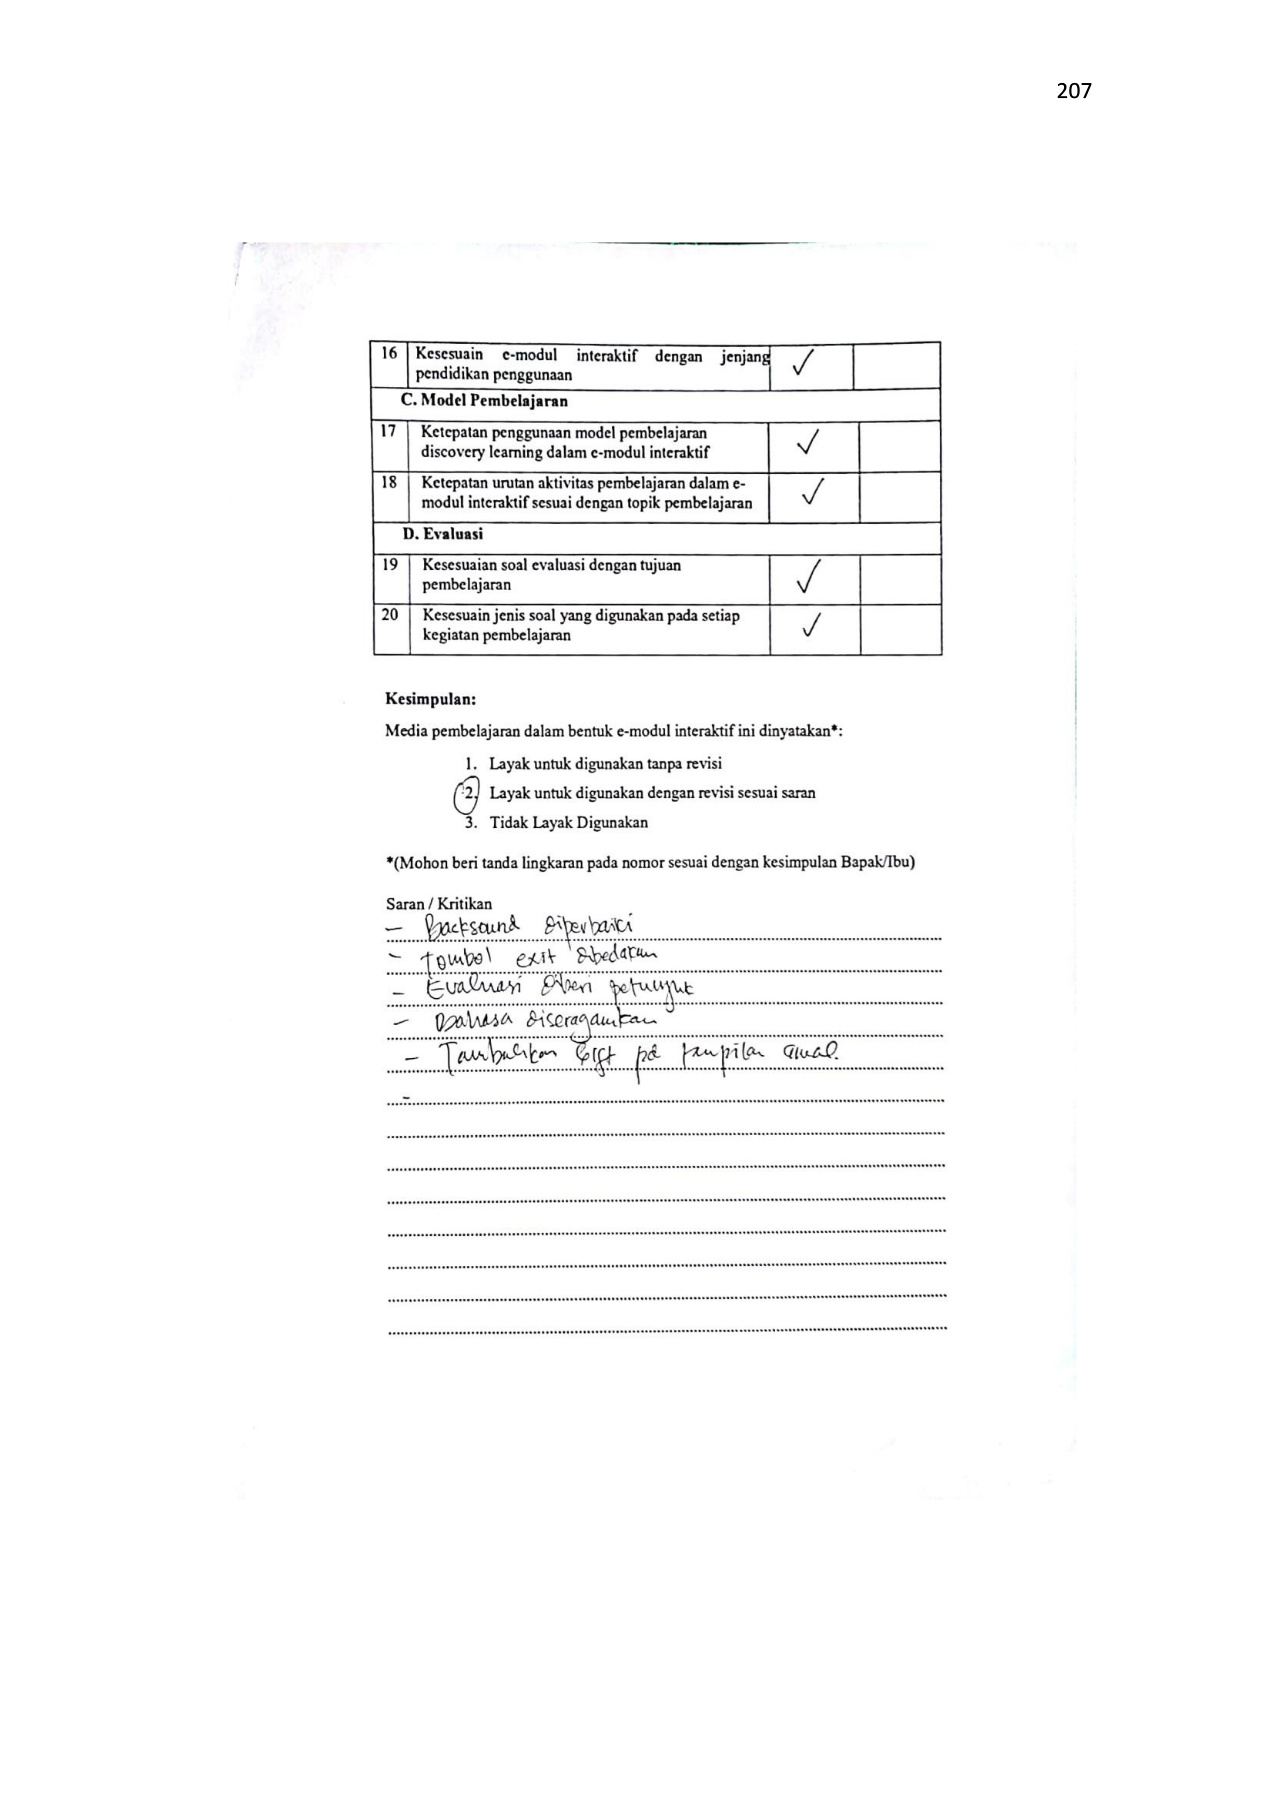 207
16 Kesesuain e-modul interaktif dengan jenjang
pendidikan penggunaan
C. Model Pembelajaran
17 Ketepatan penggunaan model pembelajaran
discovery learning dalam e-modul interaktif
18 Ketepatan urutan aktivitas pembelajaran dalam e-
modul interaktif sesuai dengan topik pembelajaran
D. Evaluasi
19 Kesesuaian soal evaluasi dengan tujuan
pembelajaran
20 Kesesuain jenis soal yang digunakan pada setiap
kegiatan pembelajaran
Kesimpulan:
Media pembelajaran dalam bentuk e-modul interaktif ini dinyatakan*:
1. Layak untuk digunakan tanpa revisi
2. Layak untuk digunakan dengan revisi sesuai saran
3. Tidak Layak Digunakan
*(Mohon beri tanda lingkaran pada nomor sesuai dengan kesimpulan Bapak/Ibu)
Saran / Kritikan
- Backsound diperbaiki
- tombol exit dibedakan
- Evaluasi diberi petunjuk
- Bahasa diseragamkan
- Tambahkan pd tampilan awal.